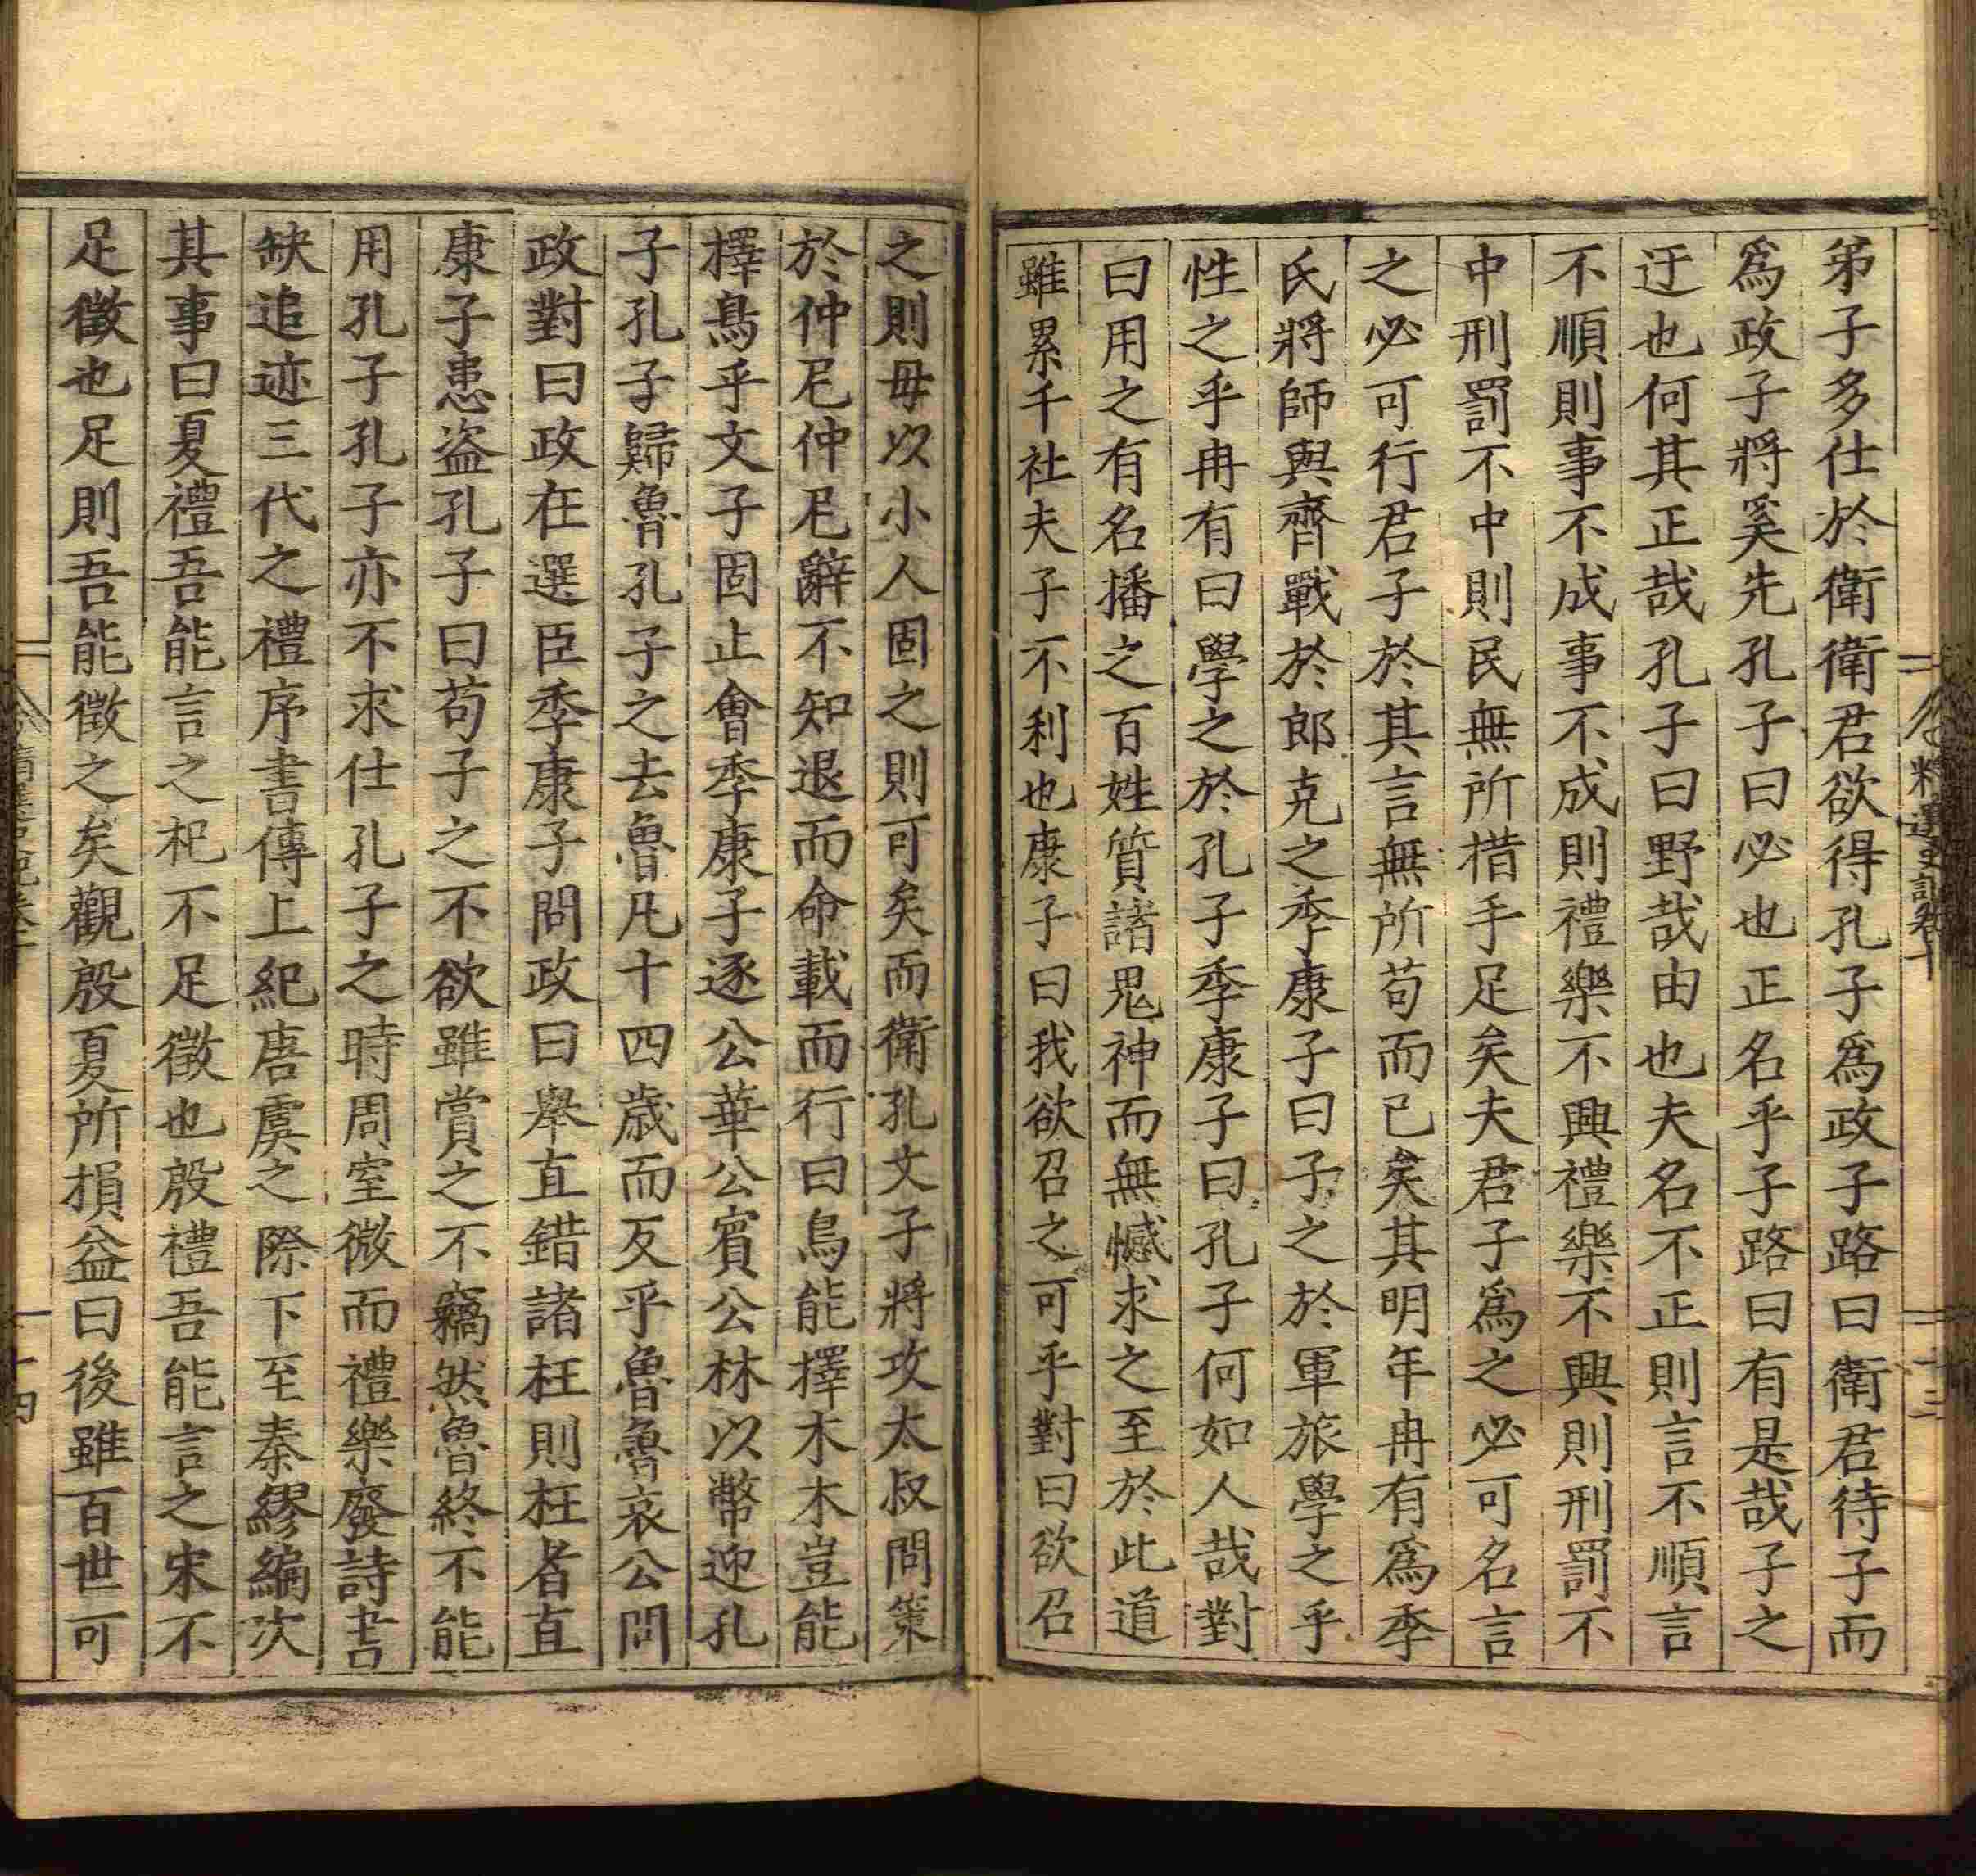 弟子多仕於衛衛君欲得孔子爲政子路曰衛君待子而
爲政子將奚先孔子曰必也正名乎子路曰有是哉子之
迂也何其正哉孔子曰野哉由也夫名不正則言不順言
不順則事不成事不成則禮樂不興禮樂不興則刑罰不
中刑罰不中則民無所措手足矣夫君子爲之必可名言
之必可行君子於其言無所苟而已矣其明年冉有爲季
氏將師與齊戰於郎克之季康子曰子之於軍旅學之乎
性之乎冉有曰學之於孔子季康子曰孔子何如人哉對
曰用之有名播之百姓質諸鬼神而無憾求之至於此道
雖累千社夫子不利也康子曰我欲召之可乎對曰欲召
之則毋以小人固之則可矣而衛孔文子將攻太叔問策
於仲尼仲尼辭不知退而命載而行曰鳥能擇木木豈能
擇鳥乎文子固止會季康子逐公華公賓公林以幣迎孔
子孔子歸魯孔子之去魯凡十四歲而反乎魯魯哀公問
政對曰政在選臣季康子問政曰舉直錯諸枉則枉者直
康子患盜孔子曰苟子之不欲雖賞之不竊然魯終不能
用孔子孔子亦不求仕孔子之時周室微而禮樂廢詩書
缺追迹三代之禮序書傳上紀唐虞之際下至秦繆編次
其事曰夏禮吾能言之杞不足徵也殷禮吾能言之宋不
足徵也足則吾能徵之矣觀殷夏所損益曰後雖百世可
精選史記卷